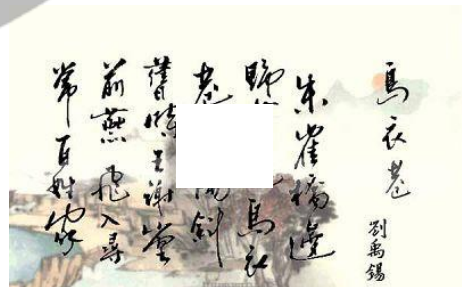 烏衣巷
劉禹錫
朱雀橋邊
野烏衣
巷斜
舊時王謝堂
前燕飛入尋
常百姓家